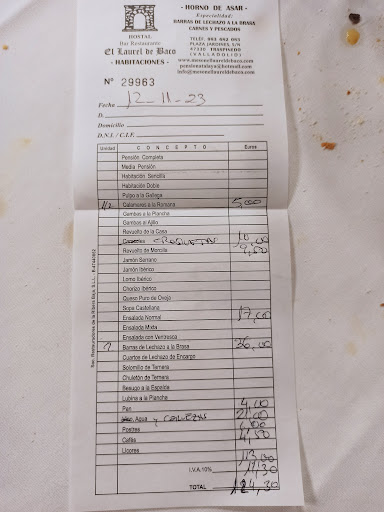 HOSTAL
Bar Restaurante
El Laurel de Baco
- HABITACIONES -
- HORNO DE ASAR -
Especialidad:
BARRAS DE LECHAZO A LA BRASA
CARNES Y PESCADOS
PLAZA JARDINES, S/N
47330 TRASPINEDO
(VALLADOLID)
Nº 29963
Fecha 12-11-23
D.
Domicilio
D.N.I. / C.I.F.
Unidad CONCEPTO Euros
Pensión Completa
Media Pensión
Habitación Sencilla
Habitación Doble
Pulpo a la Gallega
1/2 Calamares a la Romana 5,00
Gambas a la Plancha
Gambas al Ajillo
Revuelto de la Casa
CROQUETAS 10,00
Revuelto de Morcilla 9,50
Jamón Serrano
Jamón Ibérico
Lomo Ibérico
Chorizo Ibérico
Queso Puro de Oveja
Sopa Castellana
Ensalada Normal 17,00
Ensalada Mixta
Ensalada con Ventresca
Barras de Lechazo a la Brasa 36,00
Cuartos de Lechazo de Encargo
Solomillo de Ternera
Chuletón de Ternera
Besugo a la Espalda
Lubina a la Plancha
Pan 4,00
Agua y CERVEZAS 21,00
Postres
Cafés 4,50
Licores
113,00
I.V.A. 10% 11,30
TOTAL 124,30